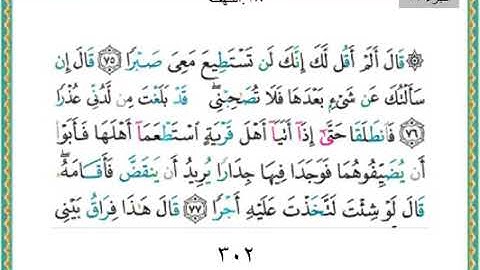 ۞ قَالَ أَلَمْ أَقُل لَّكَ إِنَّكَ لَن تَسْتَطِيعَ مَعِىَ صَبْرًا ﴿٧٥﴾ قَالَ إِن
سَأَلْتُكَ عَن شَىْءٍۭ بَعْدَهَا فَلَا تُصَٰحِبْنِى ۖ قَدْ بَلَغْتَ مِن لَّدُنِّى عُذْرًا
﴿٧٦﴾ فَٱنطَلَقَا حَتَّىٰٓ إِذَآ أَتَيَآ أَهْلَ قَرْيَةٍ ٱسْتَطْعَمَآ أَهْلَهَا فَأَبَوْا۟
أَن يُضَيِّفُوهُمَا فَوَجَدَا فِيهَا جِدَارًا يُرِيدُ أَن يَنقَضَّ فَأَقَامَهُۥ ۖ
قَالَ لَوْ شِئْتَ لَتَّخَذْتَ عَلَيْهِ أَجْرًا ﴿٧٧﴾ قَالَ هَٰذَا فِرَاقُ بَيْنِى
٣٠٢